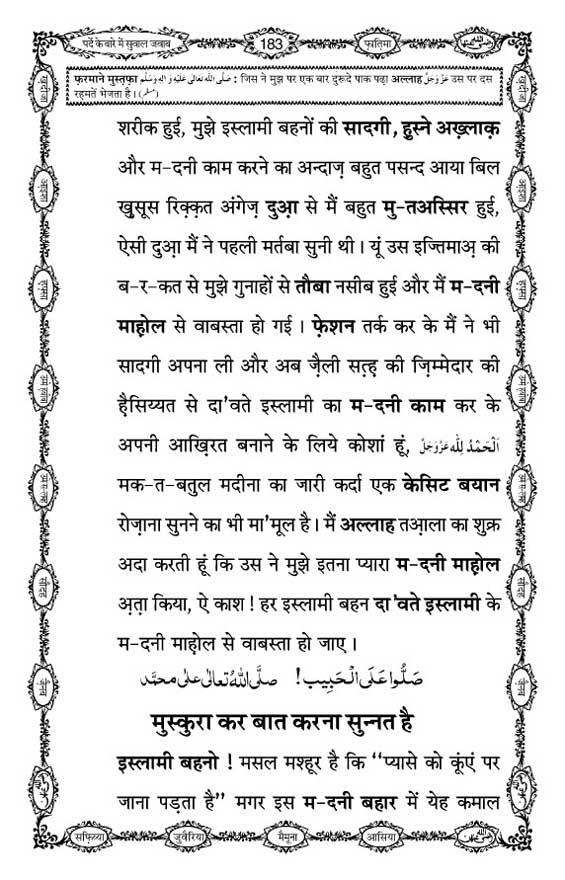 पर्दे के बारे में सुवाल जवाब
183
फ़ातिमा
फ़रमाने मुस्त़फ़ा صَلَّى اللهُ تَعَالٰى عَلَيْهِ وَاٰلِهٖ وَسَلَّم : जिस ने मुझ पर एक बार दुरूदे पाक पढ़ा अल्लाह عَزَّوَجَلَّ उस पर दस
रहमतें भेजता है। (مسلم)
शरीक हुई, मुझे इस्लामी बहनों की सादगी, हुस्ने अख़्लाक़
और म-दनी काम करने का अन्दाज़ बहुत पसन्द आया बिल
खुसूस रिक़्क़त अंगेज़ दुआ़ से मैं बहुत मु-तअस्सिर हुई,
ऐसी दुआ़ मैं ने पहली मर्तबा सुनी थी। यूं उस इज्तिमाअ़ की
ब-र-कत से मुझे गुनाहों से तौबा नसीब हुई और मैं म-दनी
माह़ोल से वाबस्ता हो गई। फ़ेशन तर्क कर के मैं ने भी
सादगी अपना ली और अब ज़ैली सत़्ह़ की ज़िम्मेदार की
है़सिय्यत से दा'वते इस्लामी का म-दनी काम कर के
अपनी आख़िरत बनाने के लिये कोशां हूं, اَلْحَمْدُ لِلّٰه عَزَّوَجَلَّ
मक-त-बतुल मदीना का जारी कर्दा एक केसिट बयान
रोज़ाना सुनने का भी मा'मूल है। मैं अल्लाह तआ़ला का शुक्र
अदा करती हूं कि उस ने मुझे इतना प्यारा म-दनी माह़ोल
अ़त़ा किया, ऐ काश ! हर इस्लामी बहन दा'वते इस्लामी के
म-दनी माह़ोल से वाबस्ता हो जाए।
صَلُّوْا عَلَى الْحَبِيْب! صلَّى اللهُ تعالٰى علٰى محمَّد
मुस्कुरा कर बात करना सुन्नत है
इस्लामी बहनो ! मसल मश्हूर है कि “प्यासे को कूंएं पर
जाना पड़ता है” मगर इस म-दनी बहार में येह कमाल
सफ़िय्या
जुवैरिया
मैमूना
आसिया